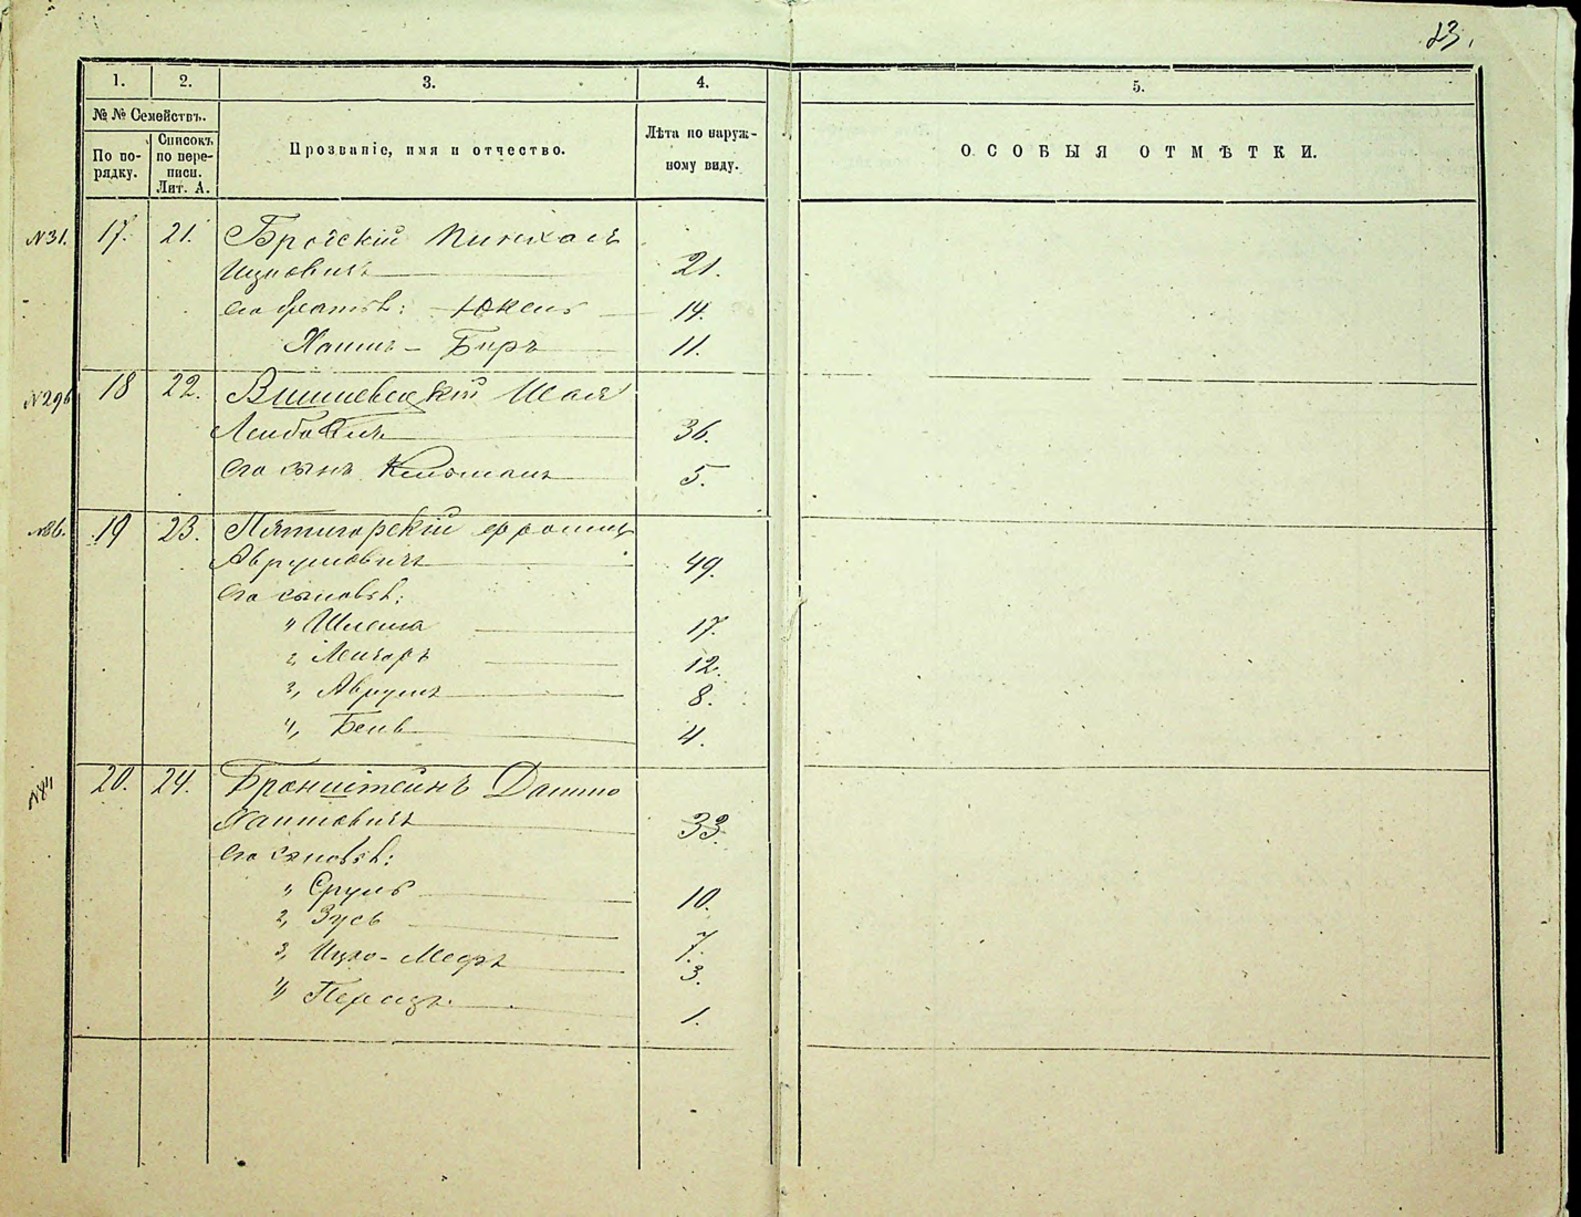 23.
1. 2. 3. 4. 5.
№ № Семействъ.
По по-
рядку.
Списокъ
по пере-
писи.
Лит. А.
Прозваніе, имя и отчество.
Лѣта по наруж-
ному виду.
ОСОБЫЯ ОТМѢТКИ.
№31. 17. 21. Бройскій Пинхасъ
Ицковичъ 21.
Его братья: 14.
Хаимъ-Беръ 11.
№296 18 22. Вишневецкій Шая
Лейбовичъ 36.
Его сынъ 5.
№86. 19 23. Пятигорскій Фроимъ
Аврумовичъ 49.
Его сыновья:
" Шлема 17.
2, Лейзоръ 12.
3, Аврумъ 8.
4, Бенъ 4.
20. 24. Бронштейнъ Данило
Хаимовичъ 33.
Его сыновья:
" Сруль 10.
2, Зусь 7.
3, Ицко-Мееръ 3.
4, Перецъ. 1.